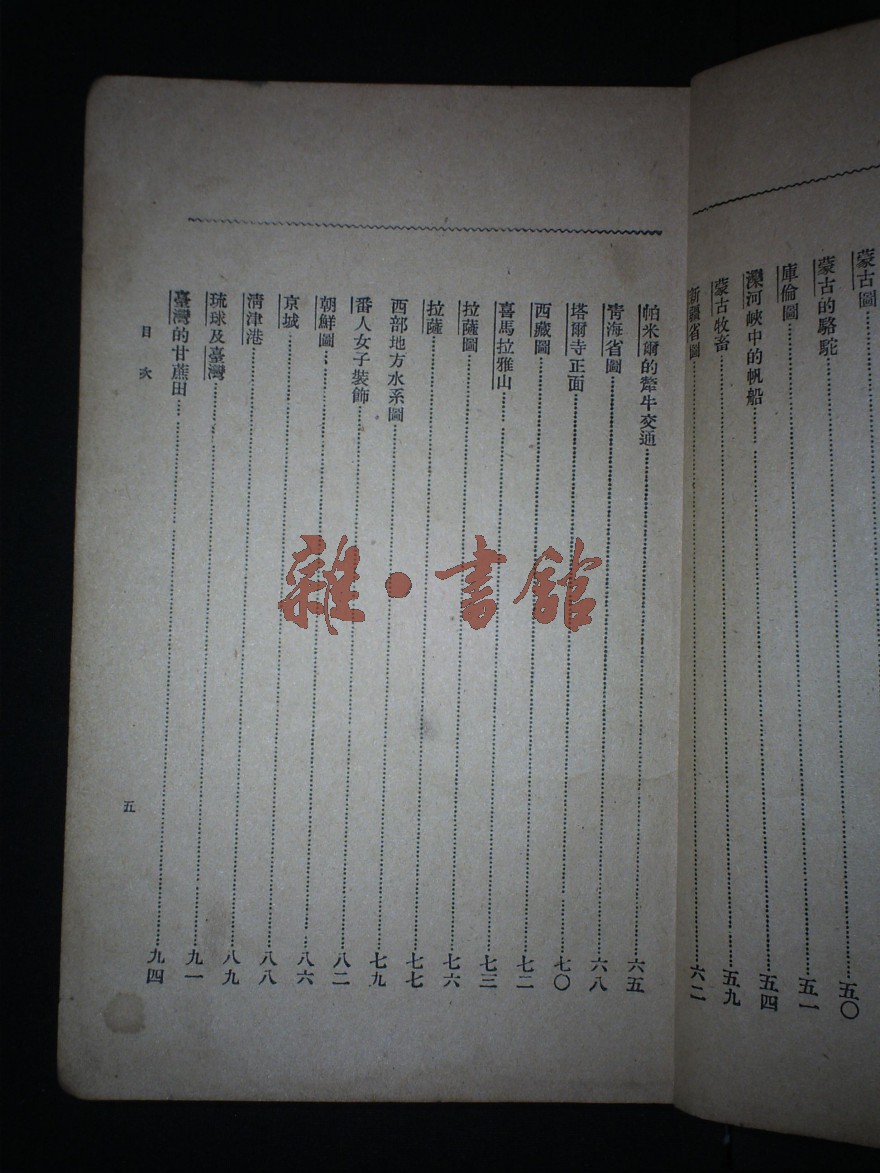 蒙古圖……五〇
蒙古的駱駝……五一
庫倫圖……五一
灤河峽中的帆船……五四
蒙古牧畜……五九
新疆省圖……六二
帕米爾的犛牛交通……六五
青海省圖……六八
塔爾寺正面……七〇
西藏圖……七二
喜馬拉雅山……七三
拉薩圖……七六
拉薩……七七
西部地方水系圖……七九
番人女子裝飾……八二
朝鮮圖……八六
京城……八八
清津港……八九
琉球及臺灣……九一
臺灣的甘蔗田……九四
目次
五
雜·書館